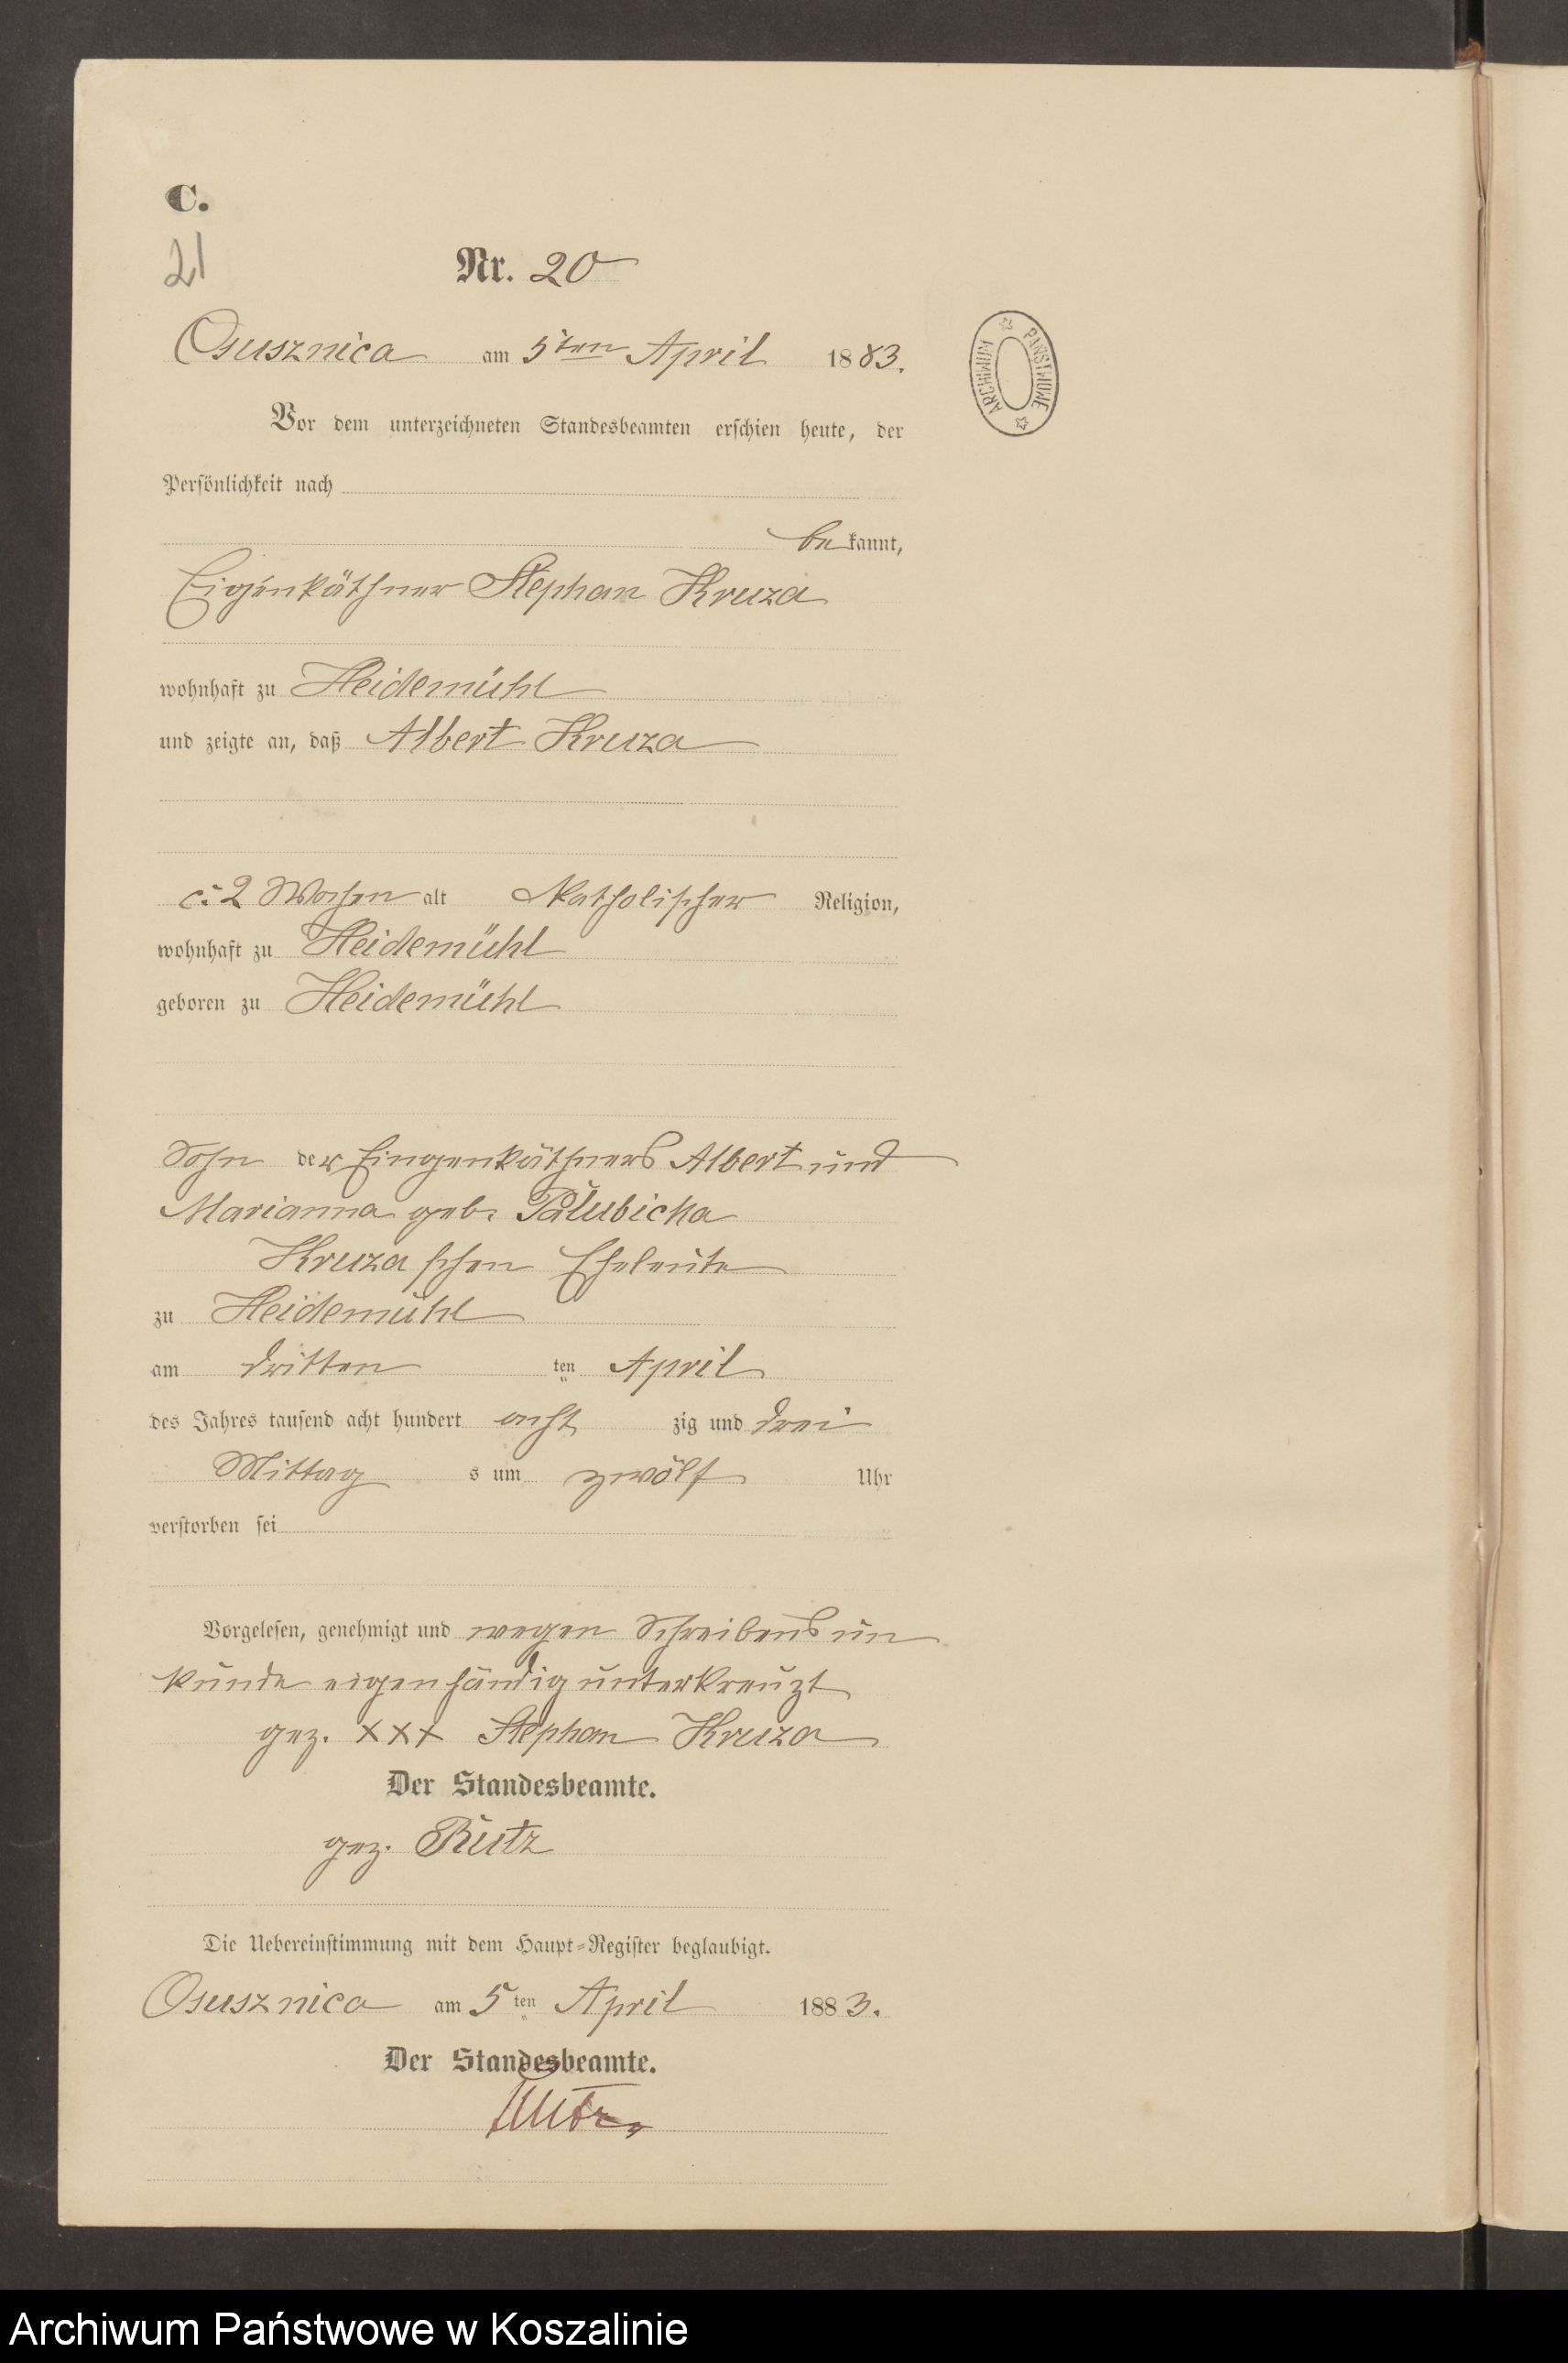 C.
21
Nr. 20
Osusznica am 5ten April 1883.
Vor dem unterzeichneten Standesbeamten erschien heute, der
Persönlichkeit nach
bekannt,
Eigenkäthner Stephan Kruza
wohnhaft zu Heidemühl
und zeigte an, daß Albert Kruza
c: 2 Wochen alt katholischer Religion,
wohnhaft zu Heidemühl
geboren zu Heidemühl
Sohn der Eingenkäthners Albert und
Marianna geb. Palubicka
Kruza schen Eheleute
zu Heidemühl
am dritten ten April
des Jahres tausend acht hundert acht zig und drei
Mittag s um zwölf Uhr
verstorben sei
Vorgelesen, genehmigt und wegen Schreibens un
kunde eigenhändig unterkreuzt
gez. XXX Stephan Kruza
Der Standesbeamte.
gez. Rutz
Die Uebereinstimmung mit dem Haupt=Register beglaubigt.
Osusznica am 5ten April 1883.
Der Standesbeamte.
Rutz
ARCHIWUM PAŃSTWOWE
Archiwum Państwowe w Koszalinie